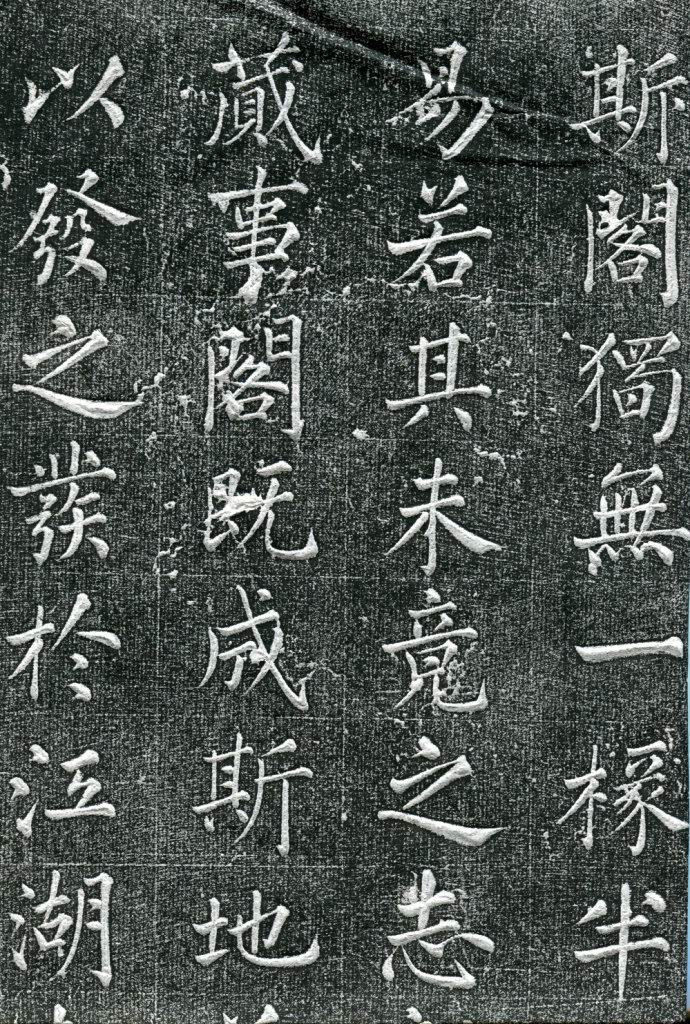 斯閣獨無一椽半
易若其未竟之志
蕆事閣既成斯地
以發之發於江湖